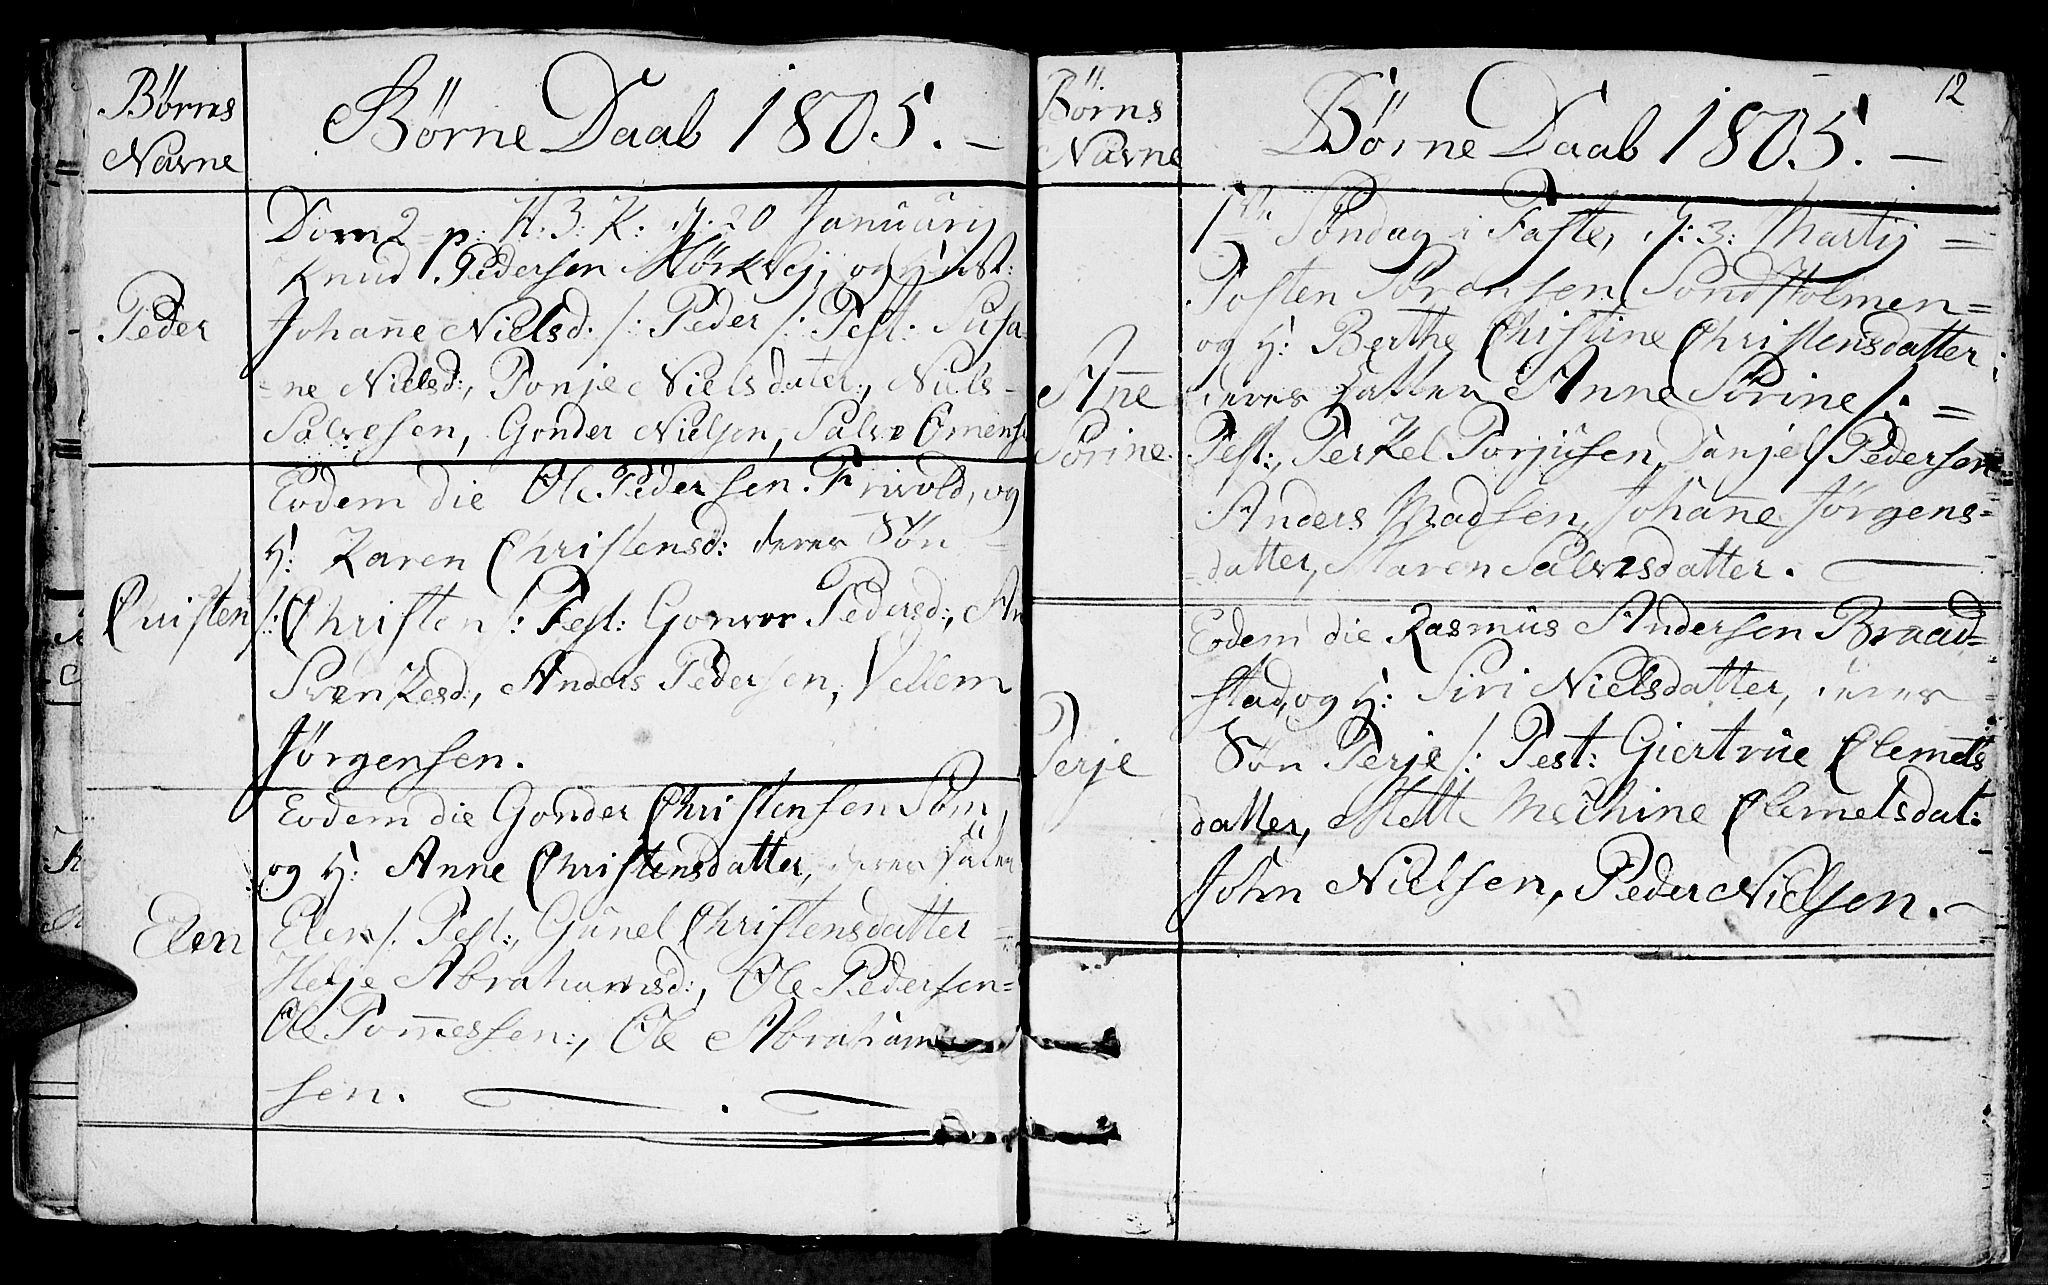 Børns
Navne
Børne Daab 1805. —
Peder
Dom 2 p: H: 3: K: d: 20 Januarij
Knud Pedersen Mörkvej, og Hust:
Johan̄e Nielsd: /: Peder /: Test: Susa-
=ne Nielsd:, Tonje Nielsdater:, Niels
Salvesen, Gonder Nielsen, Salve Omens
Christen
Eodem die Ole Pedersen Frivold, og
H: Karen Christensd: deres Søn
/: Christen /: Test: Gonvor Pedersd:, An
Svenkesd:, Anders Pedersen, Vellem
Jørgensen.
Elen
Eodem die Gonder Christensen Söm,
og H: Anne Christensdatter, deres
Elen /. Test:, Gunel Christensdatter =
Helje Abrahamsd:, Ole Pedersen =
Ole Tom̄essen:, Ole Abraham
sen.
12
Börns
Navne
Börne Daab 1805. —
An̄e
Sörine
1ste Søndag i Faste, d: 3: Martij =
Tosten Sörensen Sondholmen =
og H: Berthe Christine Christensdatter
deres Datter Anne Sörine /. =
Test:, Terkel Torjusen, Danjel Pedersen
Anders Madsen, Johan̄e Jörgens=
=datter, Maren Salvesdatter. —
Terje
Eodem die Rasmus Andersen Braad=
stad, og H: Siri Nielsdatter, deres
Søn Terje /: Test: Giertrue Clemets
datter, Mette Mechine Clemetsdat:
John Nielsen, Peder Nielsen. —